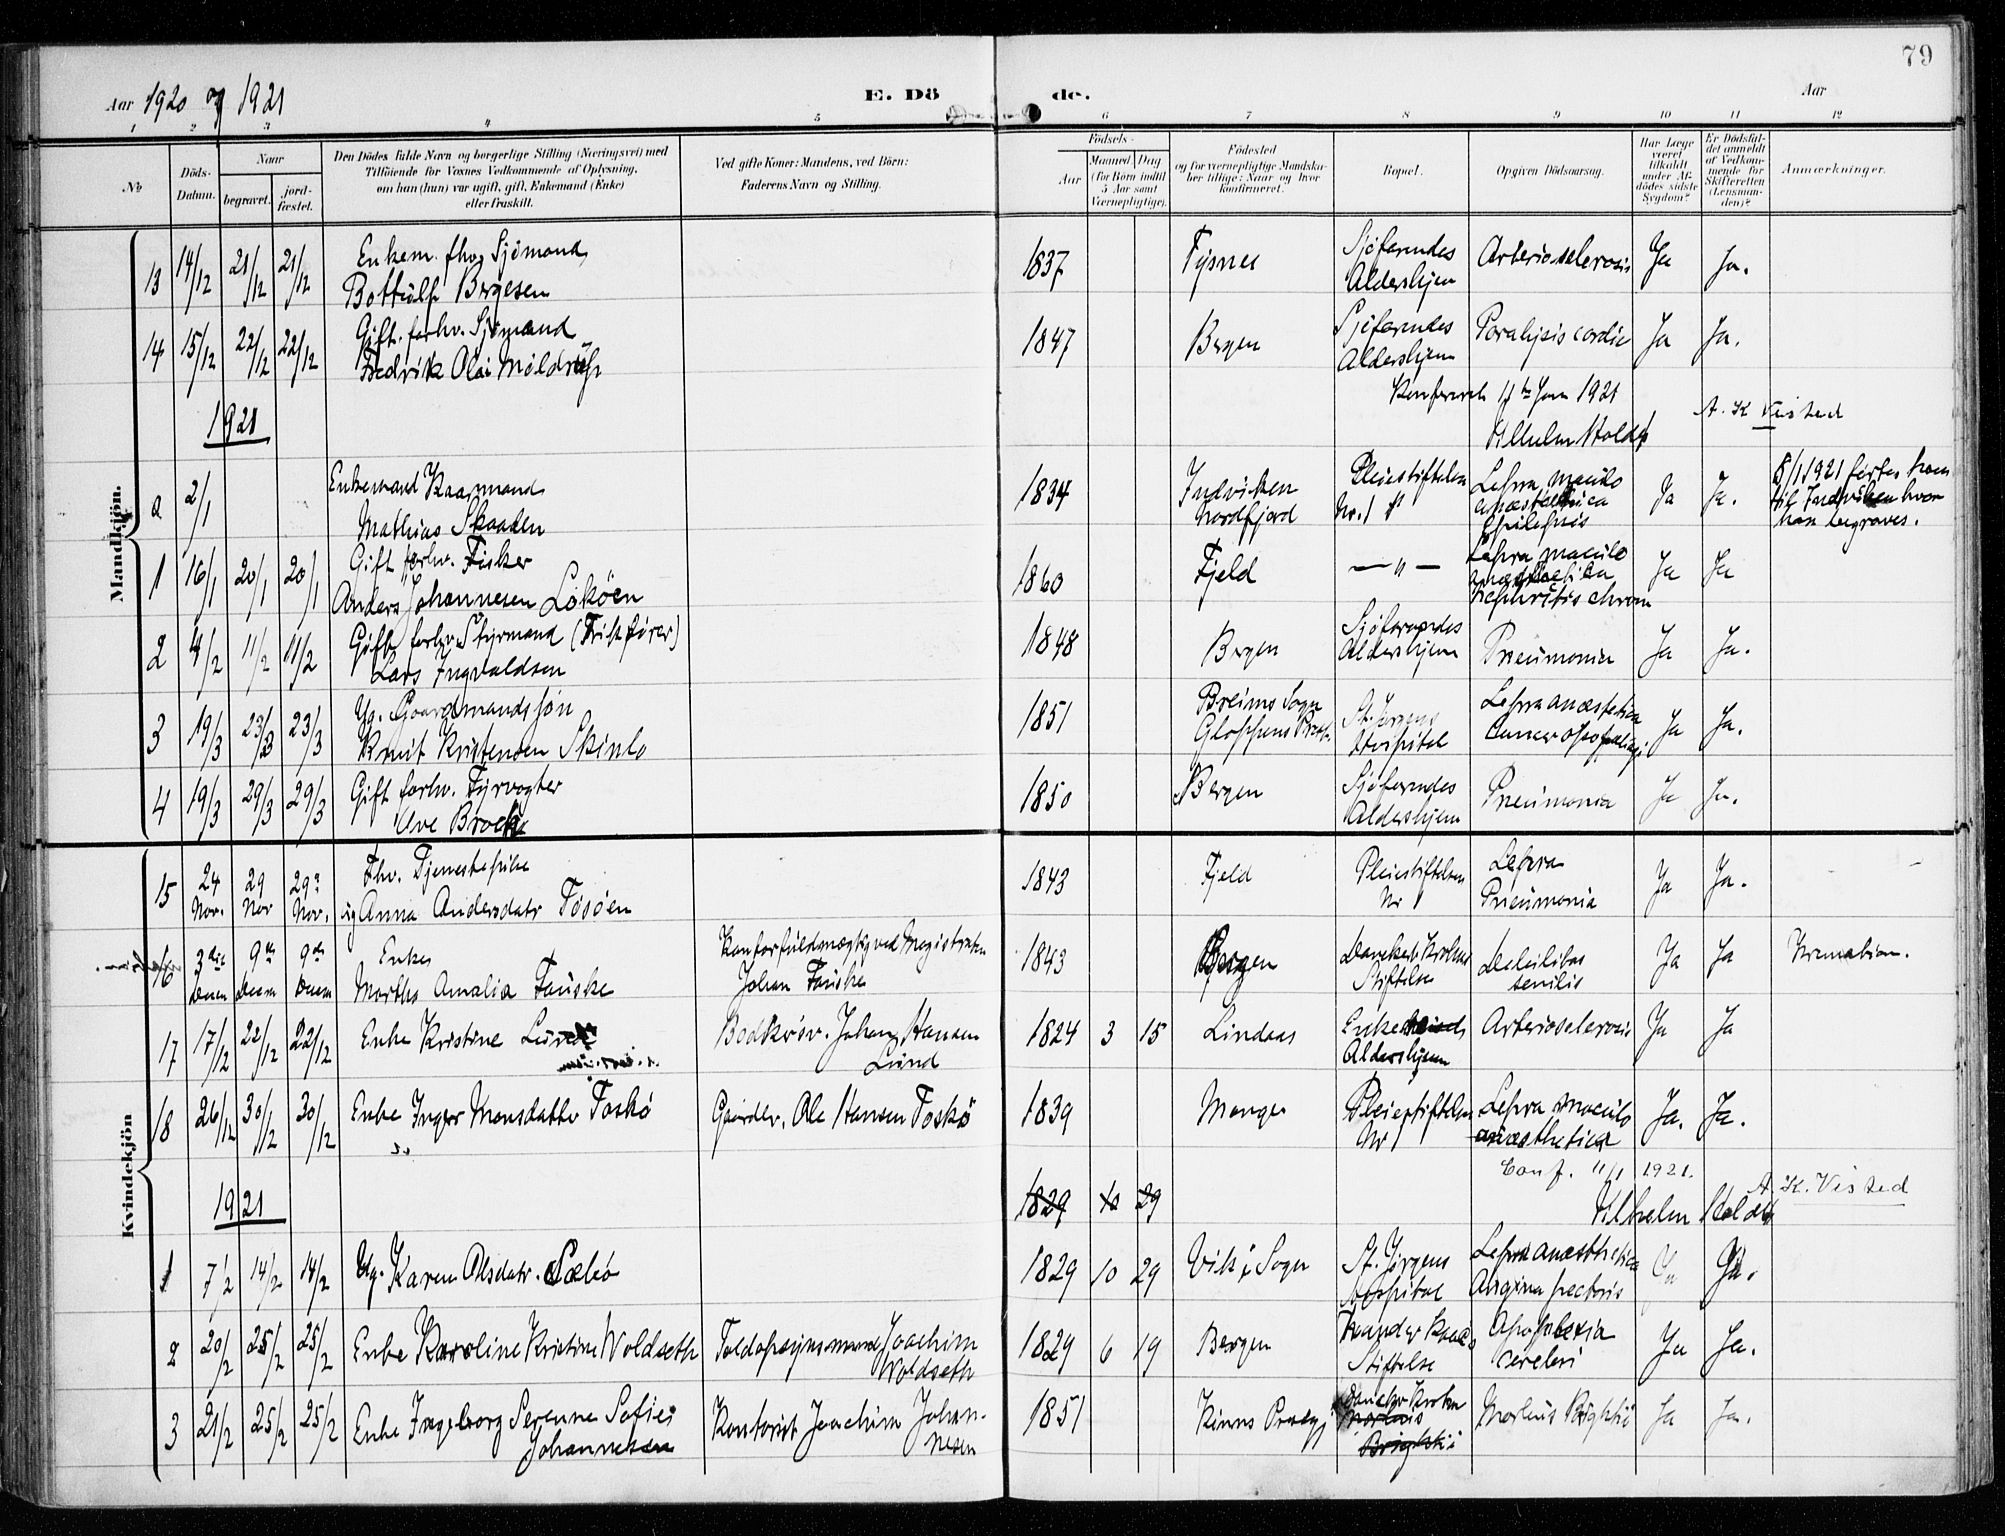 79
Aar 1920 og 1921
E. Dö
de.
Aar
1 2 3 4 5 6 7 8 9 10 11 12
No
Döds-Datum.
Naar
begravet.
jord-fæstet.
Den Dödes fulde Navn og borgerlige Stilling (Næringsvei) med
Tilföiende for Voxnes Vedkommende af Oplysning,
om han (hun) var ugift, gift, Enkemand (Enke)
eller fraskilt.
Ved gifte Koner: Mandens, ved Börn:
Faderens Navn og Stilling.
Födsels-
Aar
Maaned Dag
(for Börn indtil
5 Aar samt
Værnepligtige).
Födested
og for værnepligtige Mandska-
ber tillige: Naar og hvor
konfirmeret.
Bopæl.
Opgiven Dödsaarsag.
Har Læge
været
tilkaldt
under Af-
dödes sidste
Sygdom?
Er Dödsfal-
det anmeldt
af Vedkom-
mende for
Skifteretten
(Lensman-
den)?
Anmærkninger.
Mandkjön.
13 14/12 21/12 21/12 Enkem. fhv. Sjömand
Bottulf Bergesen
1837 Tysnes Sjöfarendes
Aldershjem Arteriosclerosis Ja Ja.
14 15/12 22/12 22/12 Gift. forhv. Sjömand
Fredrik Olai Möldrup
1847 Bergen Sjöfarendes
Aldershjem Paralysis cordis Ja Ja.
1921
Konfereret 11te Jan 1921
A. K. Visted
Vilhelm Koldrup
a 2/1 Enkemand Kaarmand
Mathias Skaaden
1834 Indviken
Nordfjord Pleiestiftelsen
Nr. 1 Lepra maculo
anæsthetica
Epilepsis Ja Ja. 8/1 1921 føres ham
til Indviken hvor
han begraves.
1 16/1 20/1 20/1 Gift forhv. Fisker
Anders Johannesen Lököen
1860 Fjeld — " — Lepra maculo
anæsthetica
Nephritis chron Ja Ja
2 4/2 11/2 11/2 Gift forhv. Styrmand
Lars Ingvaldsen
1848 Bergen Sjöfarendes
Aldershjem Pneumonia Ja Ja.
3 19/3 23/3 23/3 Ug. Gaardmandssön
Knut Kristensen Skinlo
1851 Breims Sogn
Gloppens St. Jørgens
Hospital Lepra anæstetica
Cancer Ja Ja.
4 19/3 29/3 29/3 Gift forhv. Fyrvogter
Ove Brock
1850 Bergen Sjöfarendes
Aldershjem Pneumonia Ja Ja.
Kvindekjön
15 24 Nov. 29 Nov 29 Nov. Fhv. Tjenestepike
ug Anna Andersdatr Tösöen
1843 Fjeld Pleiestiftelsen
Nr 1 Lepra
Pneumonia Ja Ja.
16 3die Decem 9de Decem 9de Decem Enke
Marthe Amalia Fauske
Kontorfuldmægtig ved Magistraten
Johan Fauske
1843 Bergen Danckert Krohns
Stiftelse Debilitas
senilis Ja Ja Kremation.
17 17/12 22/12 22/12 Enke Kristine Lund
Bödkersv. Johan Hansen
Lund
1824 3 15 Lindaas
Aldershjem Arteriosclerosis Ja Ja
18 26/12 30/12 30/12 Enke Inger Monsdatter Toskö
Gaardbr. Ole Hansen Toskö
1839 Manger Pleiestiftelsen
Nr 1 Lepra maculo
anæsthetica Ja. Ja.
Conf. 11/1 1921.
A. K. Visted
1921
1829 10 29
Vilhelm Koldrup
1 7/2 14/2 14/2 Ug. Karen Olsdatr. Sæbö
1829 10 29 Vik i Sogn St. Jørgens
Hospital Lepra anæsthetica
Angina pectoris Ja Ja.
2 20/2 25/2 25/2 Enke Karoline Kristine Woldseth
Toldopsynsmand Joachim
Woldseth
1829 6 19 Bergen
Stiftelse Apoplexia
cerebri Ja Ja.
3 21/2 25/2 25/2 Enke Ingeborg Serenne Sofie
Johannesen
Kontorist Joachim Johan-
nesen
1851 Kinns Prestgj Danckert Krohn
Morbus
Brightii Morbus Brightii Ja Ja.